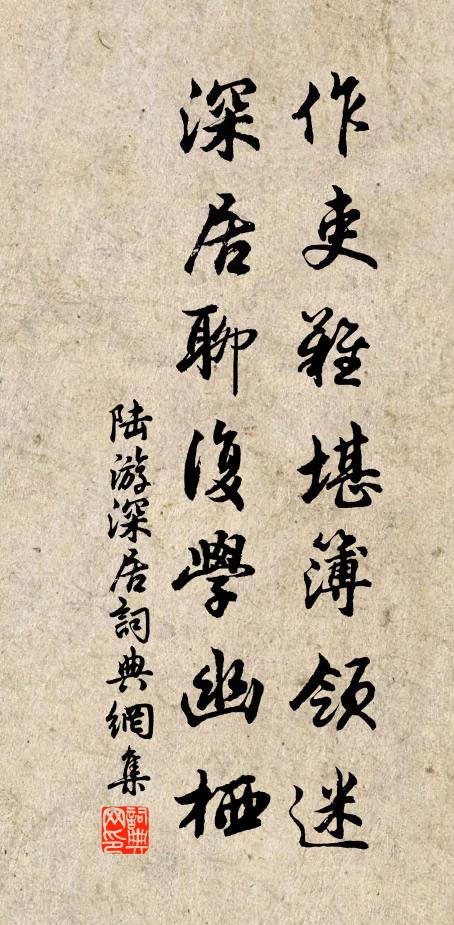 作吏難堪簿領迷
深居聊復學幽栖
陸游深居詞典網集
詞典网印